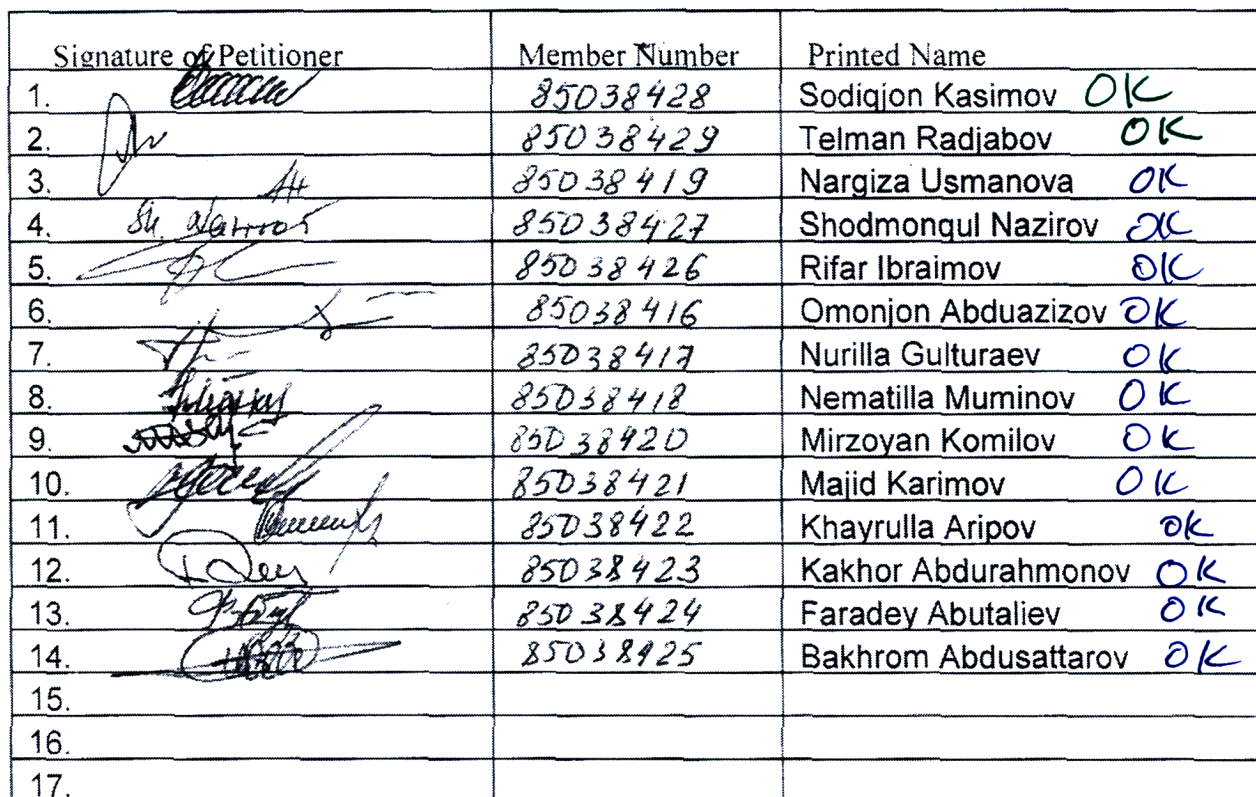 Signature of Petitioner Member Number Printed Name
1. 85038428 Sodiqjon Kasimov OK
2. 85038429 Telman Radjabov OK
3. 85038419 Nargiza Usmanova OK
4. 85038427 Shodmonqul Nazirov OK
5. 85038426 Rifar Ibraimov OK
6. 85038416 Omonjon Abduazizov OK
7. 85038417 Nurilla Gulturaev OK
8. 85038418 Nematilla Muminov OK
9. 85038420 Mirzoyan Komilov OK
10. 85038421 Majid Karimov OK
11. 85038422 Khayrulla Aripov OK
12. 85038423 Kakhor Abdurahmonov OK
13. 85038424 Faradey Abutaliev OK
14. 85038425 Bakhrom Abdusattarov OK
15.
16.
17.